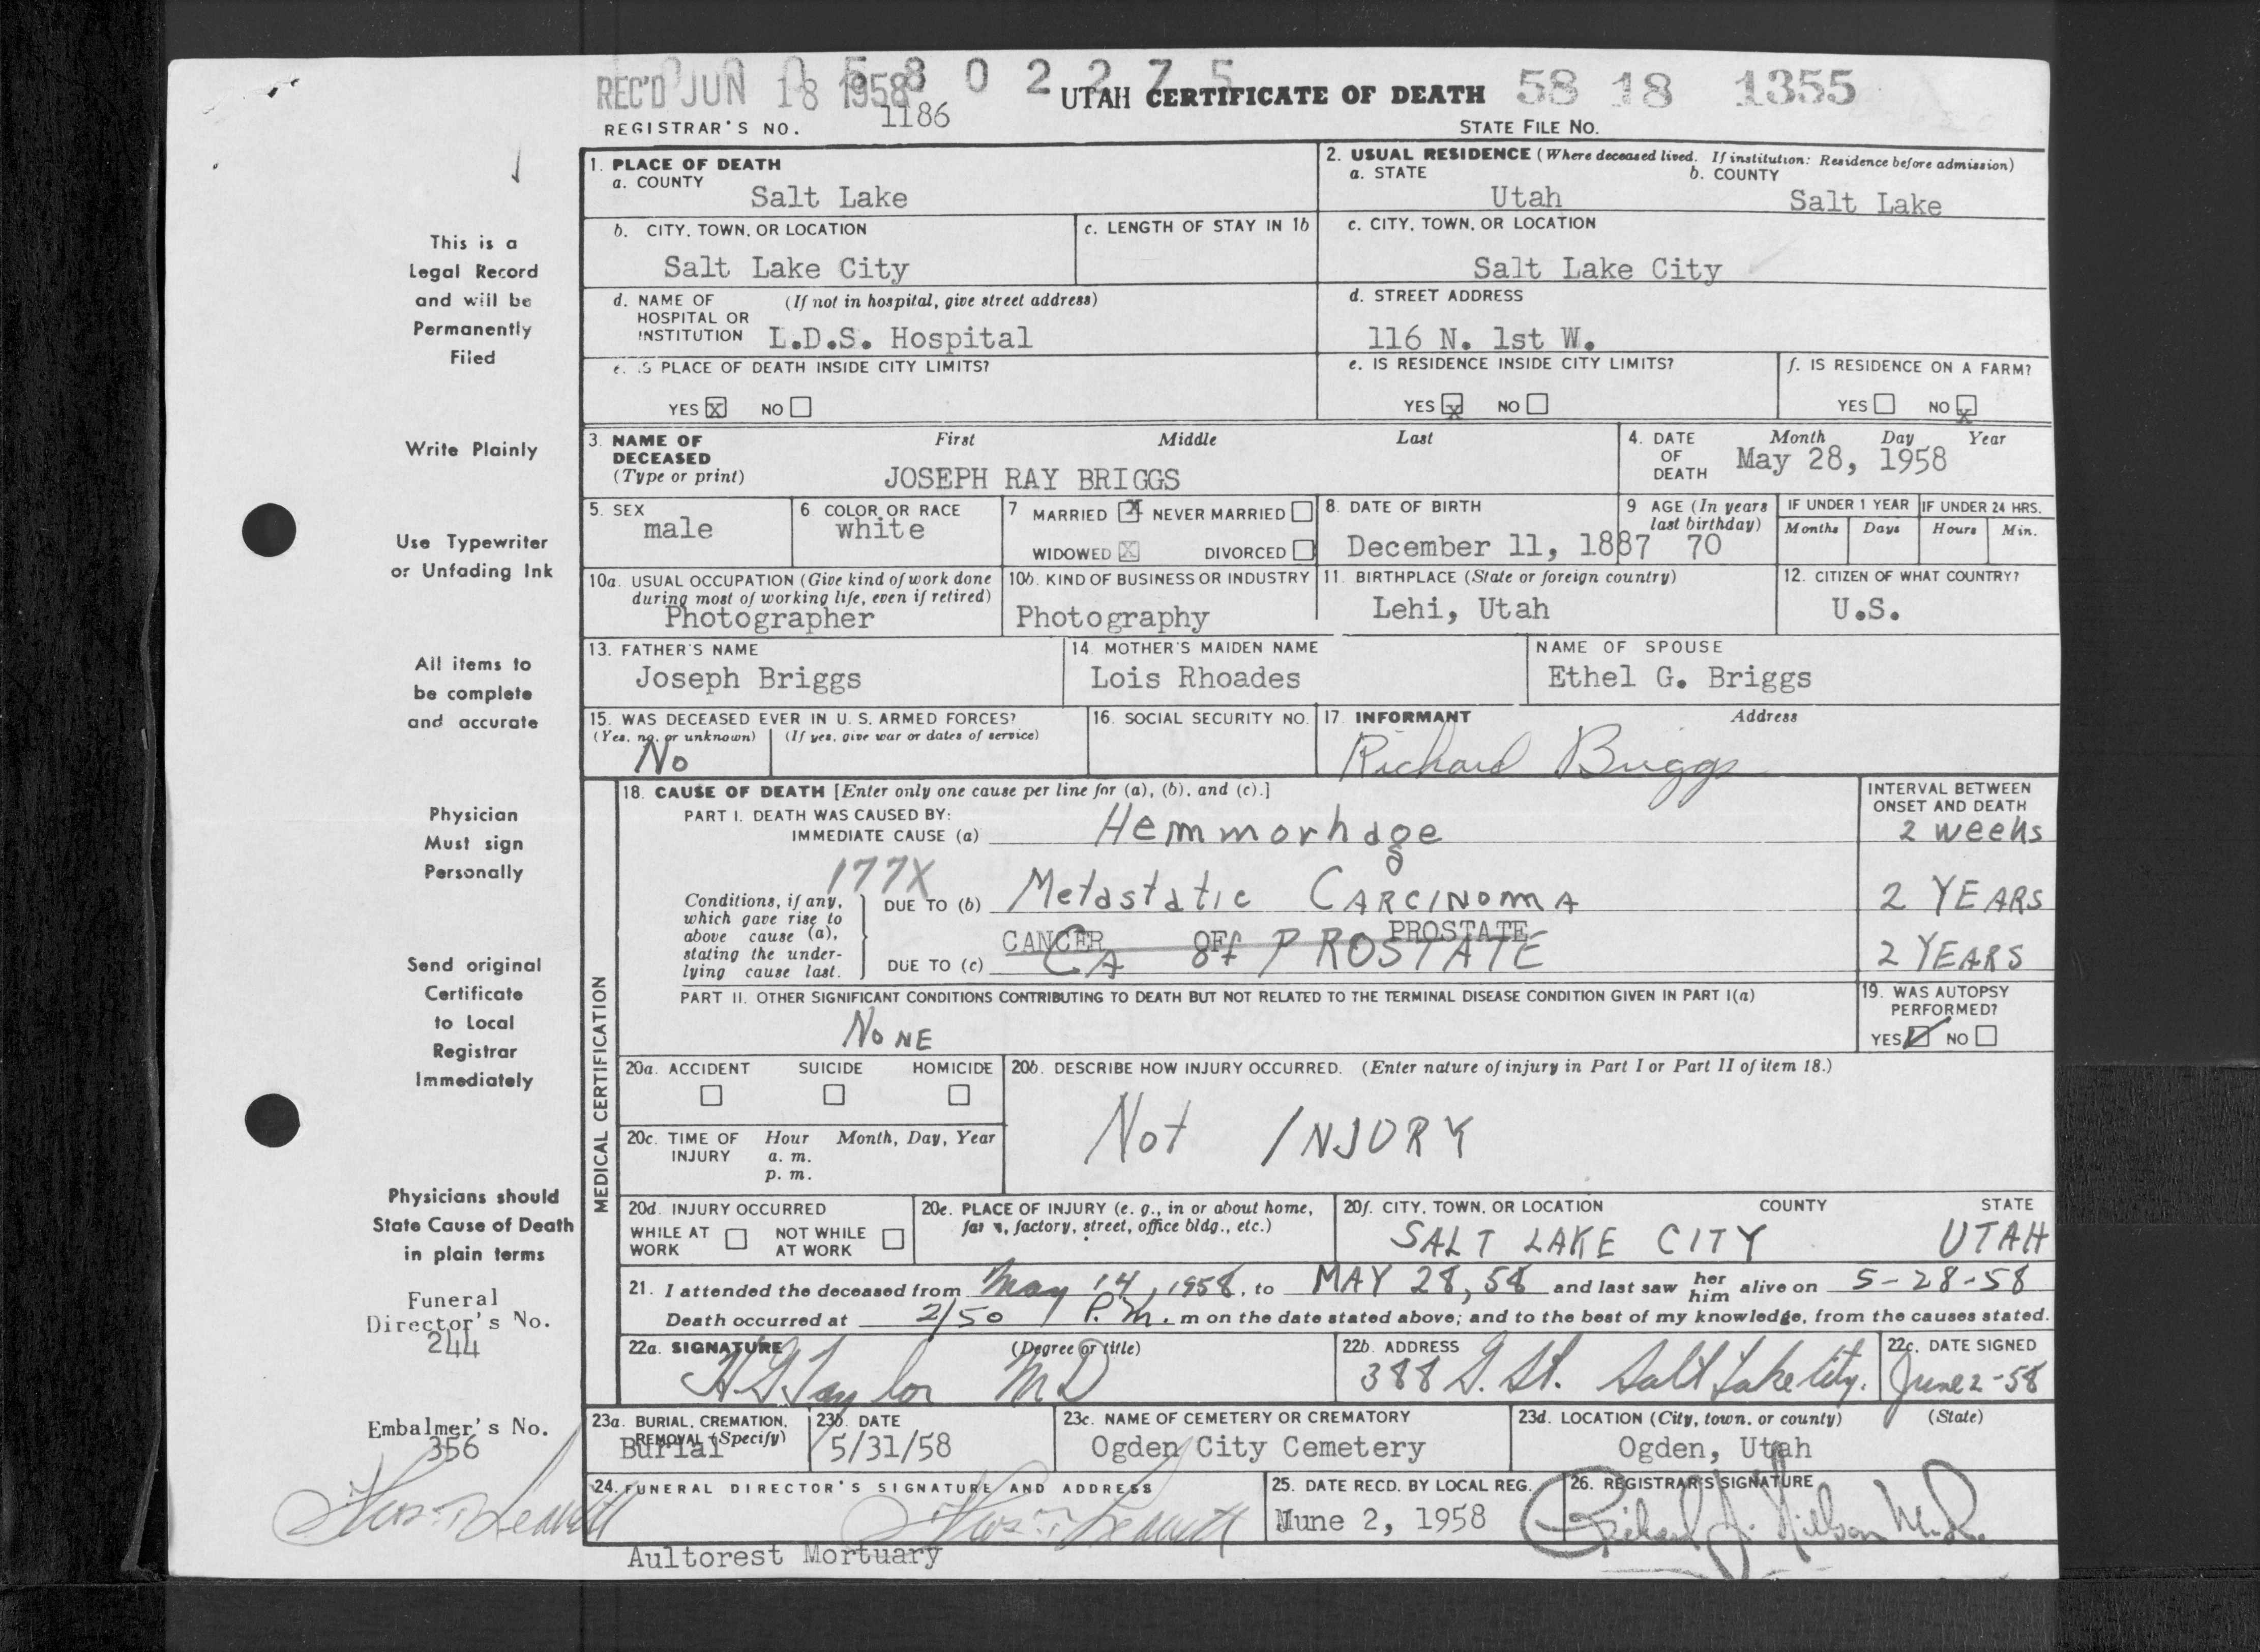 REC'D JUN 18 1958 8 0 2 2 7 5 UTAH CERTIFICATE OF DEATH 58 18 1355
REGISTRAR'S NO. 1186 STATE FILE No.
This is a
Legal Record
and will be
Permanently
Filed
Write Plainly
Use Typewriter
or Unfading Ink
All items to
be complete
and accurate
Physician
Must sign
Personally
Send original
Certificate
to Local
Registrar
Immediately
Physicians should
State Cause of Death
in plain terms
Funeral
Director's No.
244
Embalmer's No.
356
1. PLACE OF DEATH
a. COUNTY
Salt Lake
2. USUAL RESIDENCE (Where deceased lived. If institution: Residence before admission)
a. STATE b. COUNTY
Utah Salt Lake
b. CITY, TOWN, OR LOCATION
Salt Lake City
c. LENGTH OF STAY IN 1b
c. CITY, TOWN, OR LOCATION
Salt Lake City
d. NAME OF (If not in hospital, give street address)
HOSPITAL OR
INSTITUTION L.D.S. Hospital
d. STREET ADDRESS
116 N. 1st W.
e. IS PLACE OF DEATH INSIDE CITY LIMITS?
YES X NO
e. IS RESIDENCE INSIDE CITY LIMITS?
YES X NO
f. IS RESIDENCE ON A FARM?
YES NO X
3. NAME OF First Middle Last
DECEASED
(Type or print) JOSEPH RAY BRIGGS
4. DATE Month Day Year
OF May 28, 1958
DEATH
5. SEX
male
6. COLOR OR RACE
white
7 MARRIED X NEVER MARRIED
WIDOWED X DIVORCED
8. DATE OF BIRTH
December 11, 1887
9 AGE (In years
last birthday)
70
IF UNDER 1 YEAR
Months Days
IF UNDER 24 HRS.
Hours Min.
10a. USUAL OCCUPATION (Give kind of work done
during most of working life, even if retired)
Photographer
10b. KIND OF BUSINESS OR INDUSTRY
Photography
11. BIRTHPLACE (State or foreign country)
Lehi, Utah
12. CITIZEN OF WHAT COUNTRY?
U.S.
13. FATHER'S NAME
Joseph Briggs
14. MOTHER'S MAIDEN NAME
Lois Rhoades
NAME OF SPOUSE
Ethel G. Briggs
15. WAS DECEASED EVER IN U. S. ARMED FORCES?
(Yes, no, or unknown) (If yes, give war or dates of service)
No
16. SOCIAL SECURITY NO.
17. INFORMANT Address
Richard Briggs
MEDICAL CERTIFICATION
18. CAUSE OF DEATH [Enter only one cause per line for (a), (b), and (c).]
PART I. DEATH WAS CAUSED BY:
IMMEDIATE CAUSE (a) Hemmorhage
INTERVAL BETWEEN
ONSET AND DEATH
2 weeks
177X
Conditions, if any,
which gave rise to
above cause (a),
stating the under-
lying cause last.
DUE TO (b) Metastatic CARCINOMA 2 YEARS
CANCER OF PROSTATE
DUE TO (c) CA of PROSTATE 2 YEARS
PART II. OTHER SIGNIFICANT CONDITIONS CONTRIBUTING TO DEATH BUT NOT RELATED TO THE TERMINAL DISEASE CONDITION GIVEN IN PART I(a)
NONE
19. WAS AUTOPSY
PERFORMED?
YES NO
20a. ACCIDENT SUICIDE HOMICIDE
20b. DESCRIBE HOW INJURY OCCURRED. (Enter nature of injury in Part I or Part II of item 18.)
Not INJURY
20c. TIME OF Hour Month, Day, Year
INJURY a. m.
p. m.
20d. INJURY OCCURRED
WHILE AT NOT WHILE
WORK AT WORK
20e. PLACE OF INJURY (e. g., in or about home,
farm, factory, street, office bldg., etc.)
20f. CITY, TOWN, OR LOCATION COUNTY STATE
SALT LAKE CITY UTAH
21. I attended the deceased from May 14, 1958, to MAY 28, 58 and last saw her him alive on 5-28-58
Death occurred at 2/50 P.M. m on the date stated above; and to the best of my knowledge, from the causes stated.
22a. SIGNATURE (Degree or title)
H G Taylor MD
22b. ADDRESS
388 G. St. Salt Lake City.
22c. DATE SIGNED
June 2-58
23a. BURIAL, CREMATION,
REMOVAL (Specify)
Burial
23b. DATE
5/31/58
23c. NAME OF CEMETERY OR CREMATORY
Ogden City Cemetery
23d. LOCATION (City, town, or county) (State)
Ogden, Utah
24. FUNERAL DIRECTOR'S SIGNATURE AND ADDRESS
25. DATE RECD. BY LOCAL REG.
June 2, 1958
26. REGISTRAR'S SIGNATURE
Aultorest Mortuary